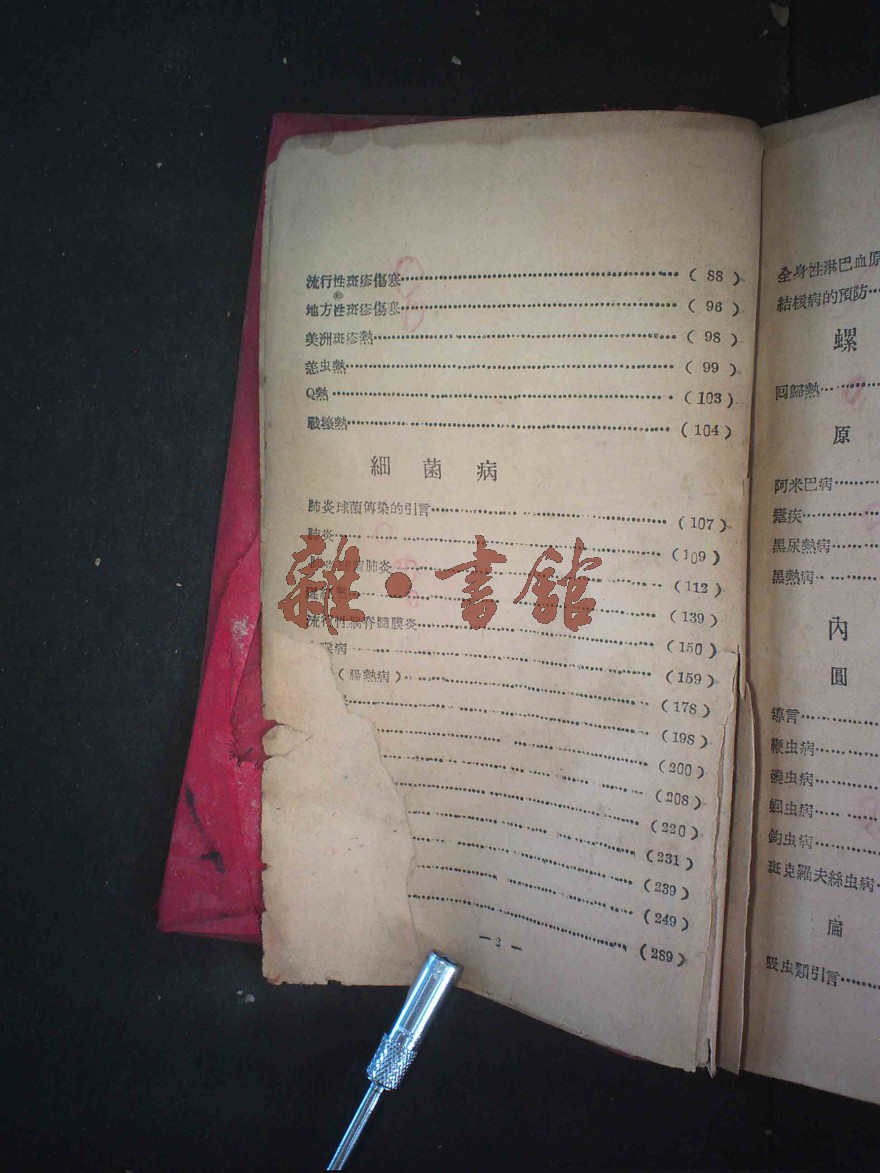 流行性斑疹傷寒 (88)
地方性斑疹傷寒 (96)
美洲斑疹熱 (98)
恙虫熱 (99)
Q熱 (103)
戰壕熱 (104)
細菌病
肺炎球菌傳染的引言 (107)
肺炎 (109)
肺炎 (112)
(139)
流行性腦脊髓膜炎 (150)
病 (159)
(腸熱病) (178)
(198)
(200)
(208)
(220)
(231)
(239)
(249)
(289)
雜·書館
全身性淋巴血
結核病的預防
螺
回歸熱
原
阿米巴病
瘧疾
黑尿熱病
黑熱病
內
圓
導言
鞭虫病
蟯虫病
蛔虫病
鈎虫病
斑克羅夫絲虫病
扁
吸虫類引言